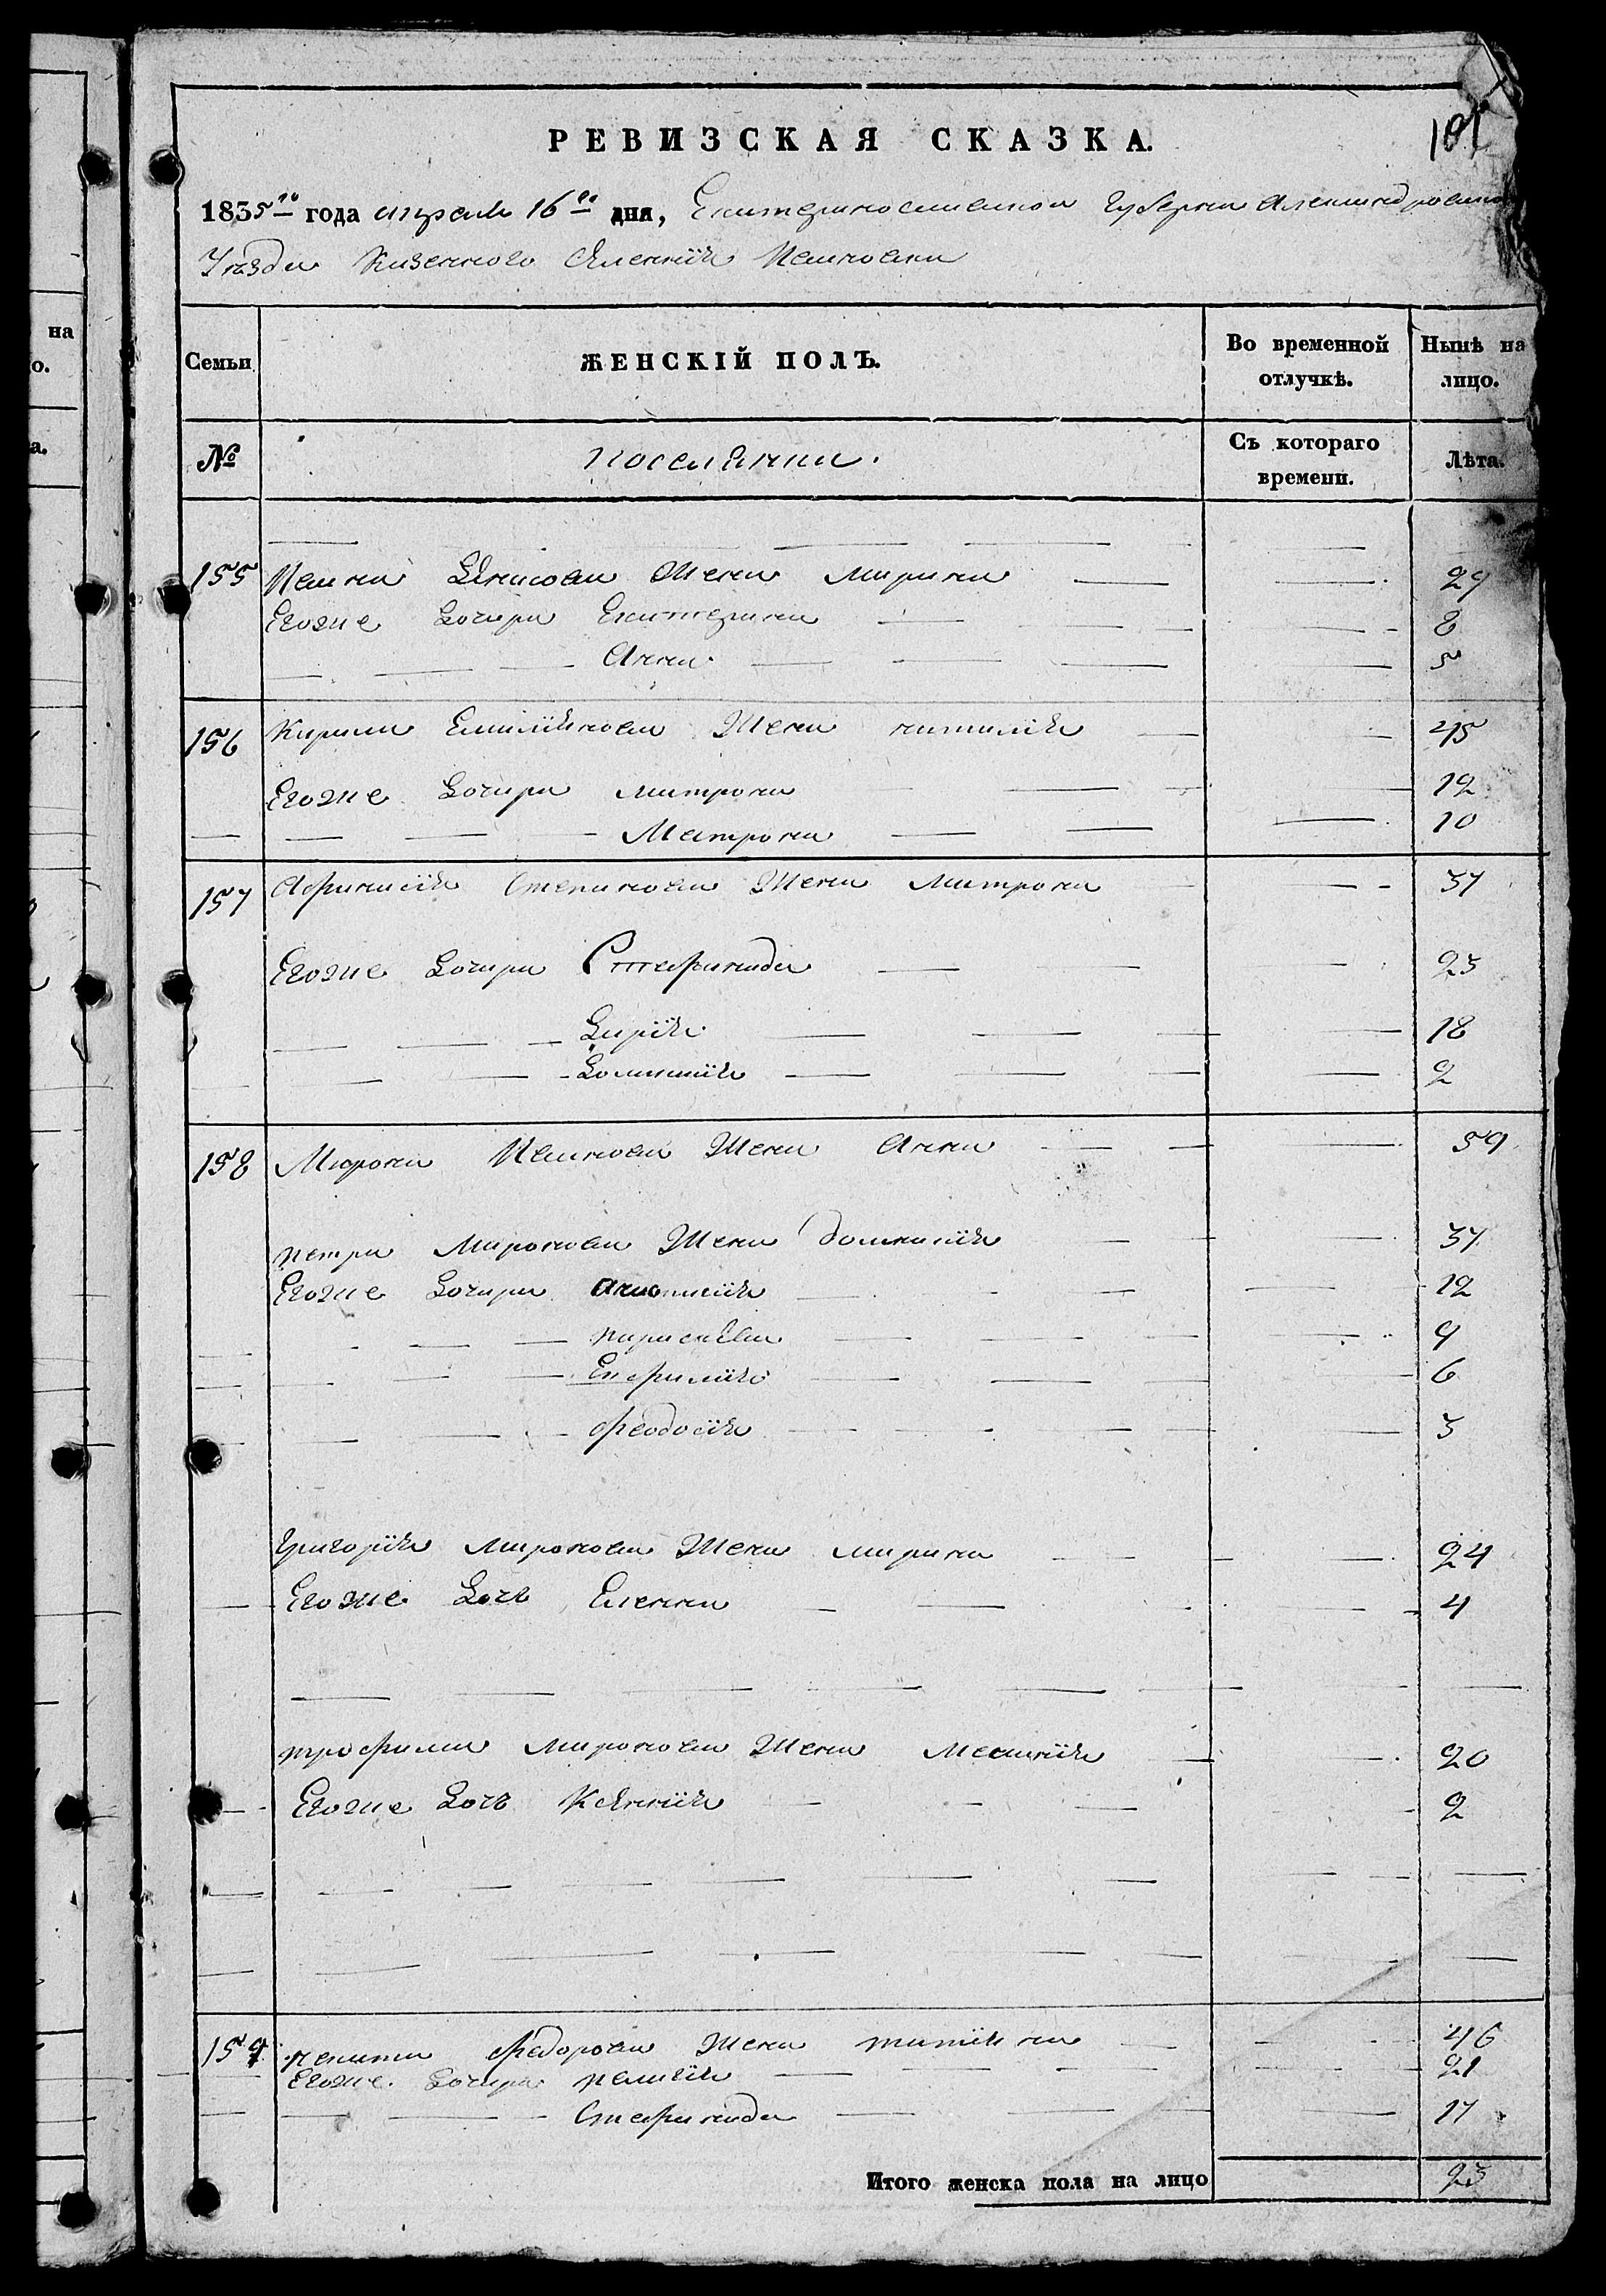 на
о.
а.
101
РЕВИЗСКАЯ СКАЗКА.
1835го года апреля 16го дня, Екатеринославской Губернии Александровского
Уезда Казенного Селения Ивановки
Семьи
ЖЕНСКІЙ ПОЛЪ.
Во временной отлучкѣ.
Нынѣ на лицо.
№
поселянки.
Съ котораго времени.
Лѣта.
155 Ивана Жена Марина 29
Егоже Дочери Екатерина 8
Анна 5
156 Кирила Емелянова Жена наталия 45
Егоже Дочери матрона 12
Матрона 10
157 Афанасия Степанова Жена Матрона 37
Егоже Дочери Стефанида 23
Дария 18
Домникия 2
158 Мирона Иванова Жена Анна 59
петра Миронова Жена домникия 37
Егоже Дочери 12
параскева 9
Евфимия 6
феодосия 3
Григория миронова Жена марина 24
Егоже Дочь Еленна 4
трофима миронова Жена Мелания 20
Егоже Дочь Ксения 2
159 федорова Жена татияна 46
Егоже Дочери 21
Стефанида 17
Итого женска пола на лицо 23